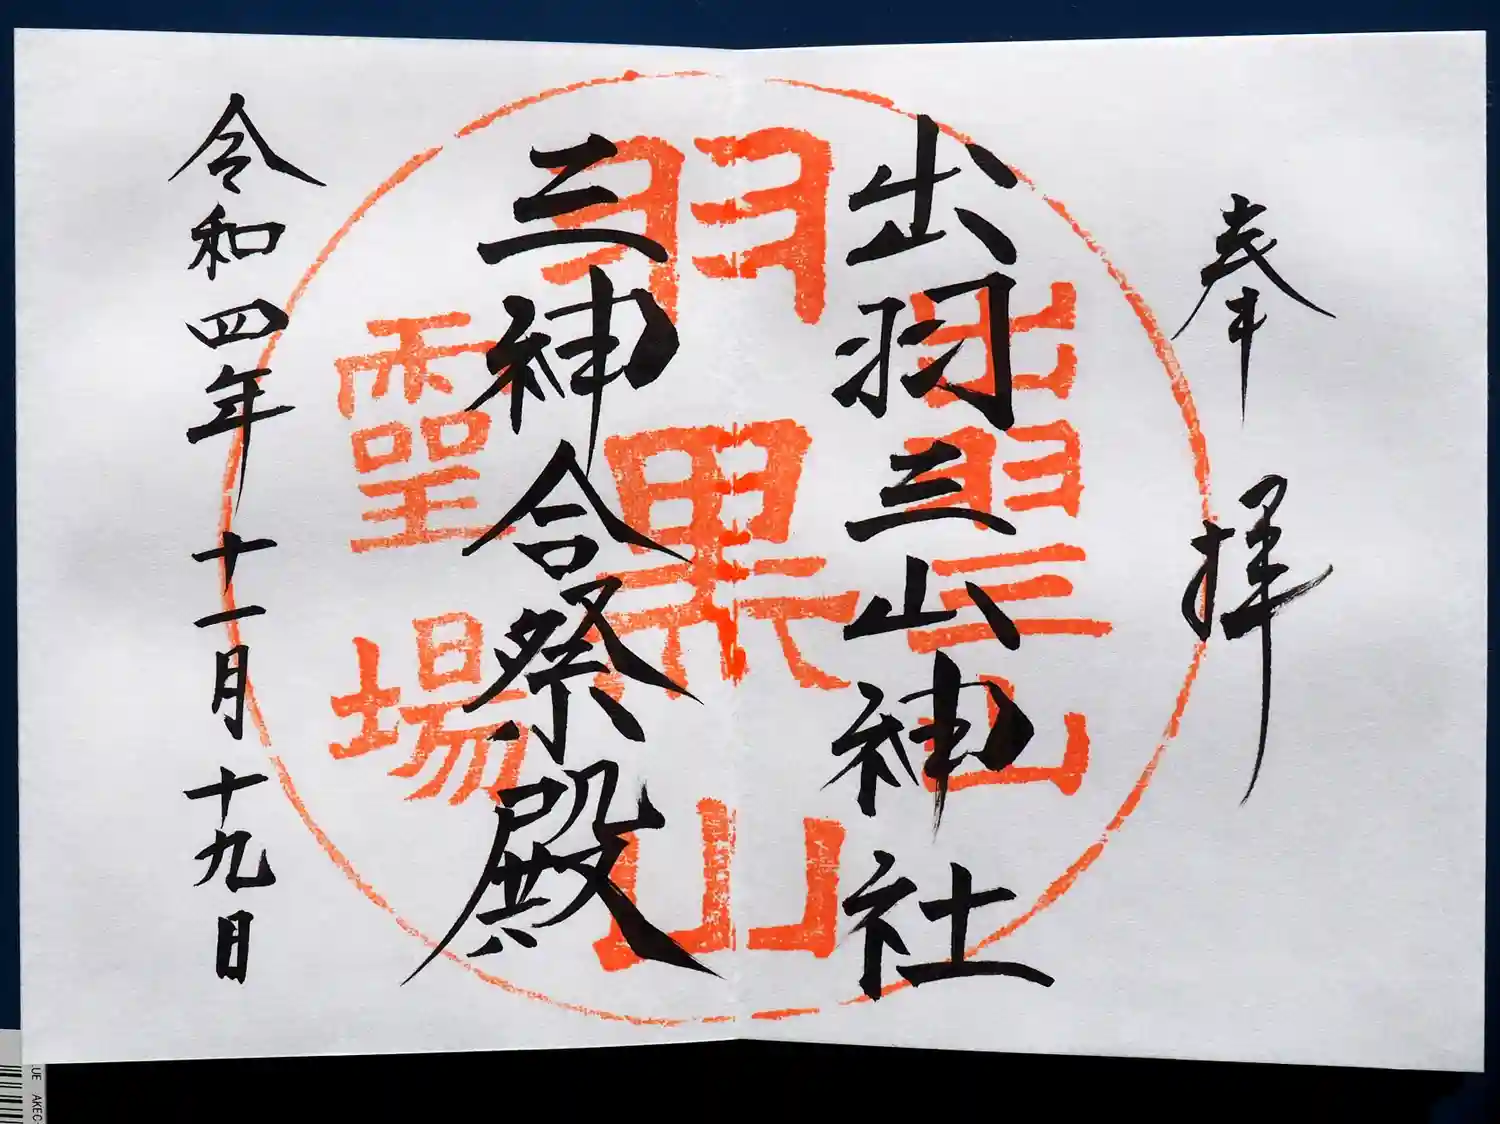 奉拝
出羽三山神社
三神合祭殿
令和四年十一月十九日
出羽三山
羽黒山
靈場
UE AKEC-